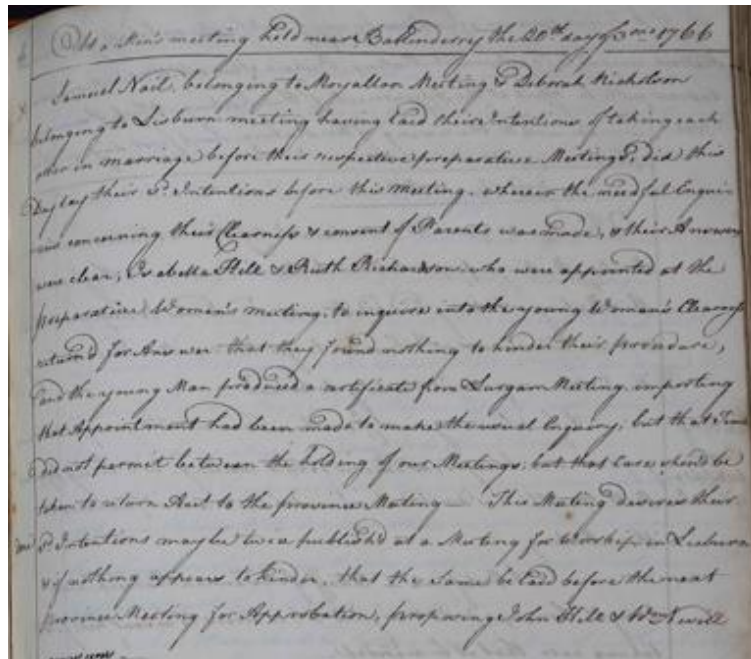 At a Men's meeting held near Ballinderry the 20th day of 3mo 1766
Samuel Nail, belonging to Moyallon Meeting & Deborah Nicholson
belonging to Lisburn meeting having laid their Intentions of taking each
other in marriage before their respective preparative Meetings, Did this
Day lay their sd. Intentions before this Meeting. wherein the needful Enqui-
ries concerning their Clearness & consent of Parents was made, & their Answers
were clear, Isabella Hill & Ruth Richardson who were appointed at the
preparative Women's meeting, to inquire into the young Woman's Clearness
return'd for Answer that they found nothing to hinder their procedure,
and the young Man produced a certificate from Lurgan Meeting importing
that Appointment had been made to make the usual Enquiry, but that Time
did not permit between the holding of our Meetings, but that Care should be
taken to return Acct. to the province Meeting — This Meeting desires their
sd Intentions may be twice publish'd at a Meeting for Worship in Lisburn
& if nothing appears to hinder, that the Same be laid before the next
province Meeting for Approbation, proposing John Hill & Wm Nevill